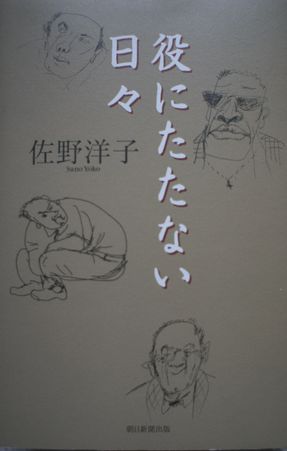 役にたたない
日々
佐野洋子
Sano Yoko
朝日新聞出版